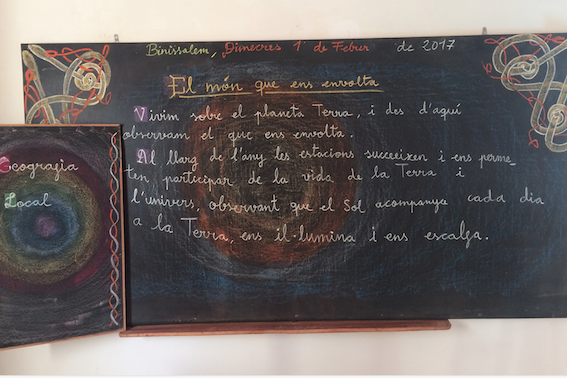 Binissalem, Dimecres 1 de Febrer de 2017
El món que ens envolta
Vivim sobre el planeta Terra, i des d'aquí
observam el que ens envolta.
Al llarg de l'any les estacions succeeixen i ens perme-
ten participar de la vida de la Terra i
l'univers, observant que el Sol acompanya cada dia
a la Terra, ens il·lumina i ens escalfa.
Geografia
Local